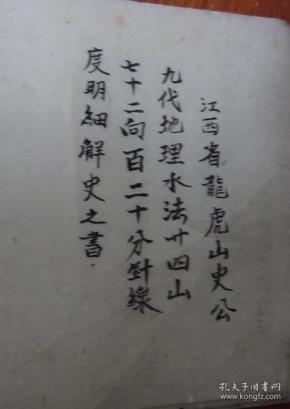 江西省龍虎山史公
九代地理水法廿四山
七十二向百二十分針線
度明細解史之書.
孔夫子旧书网